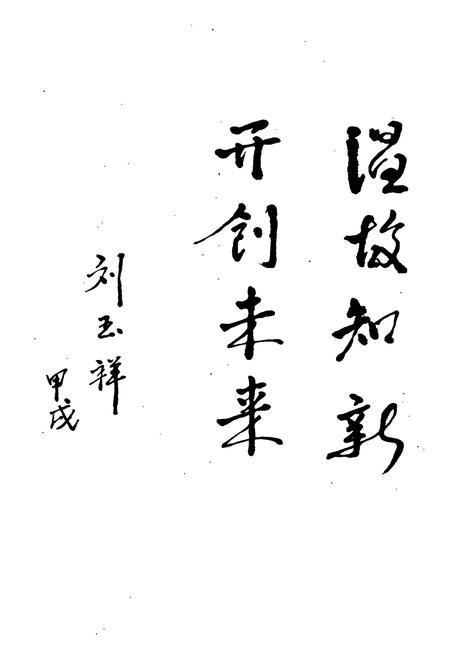 温故知新
开创未来
刘玉祥
甲戌